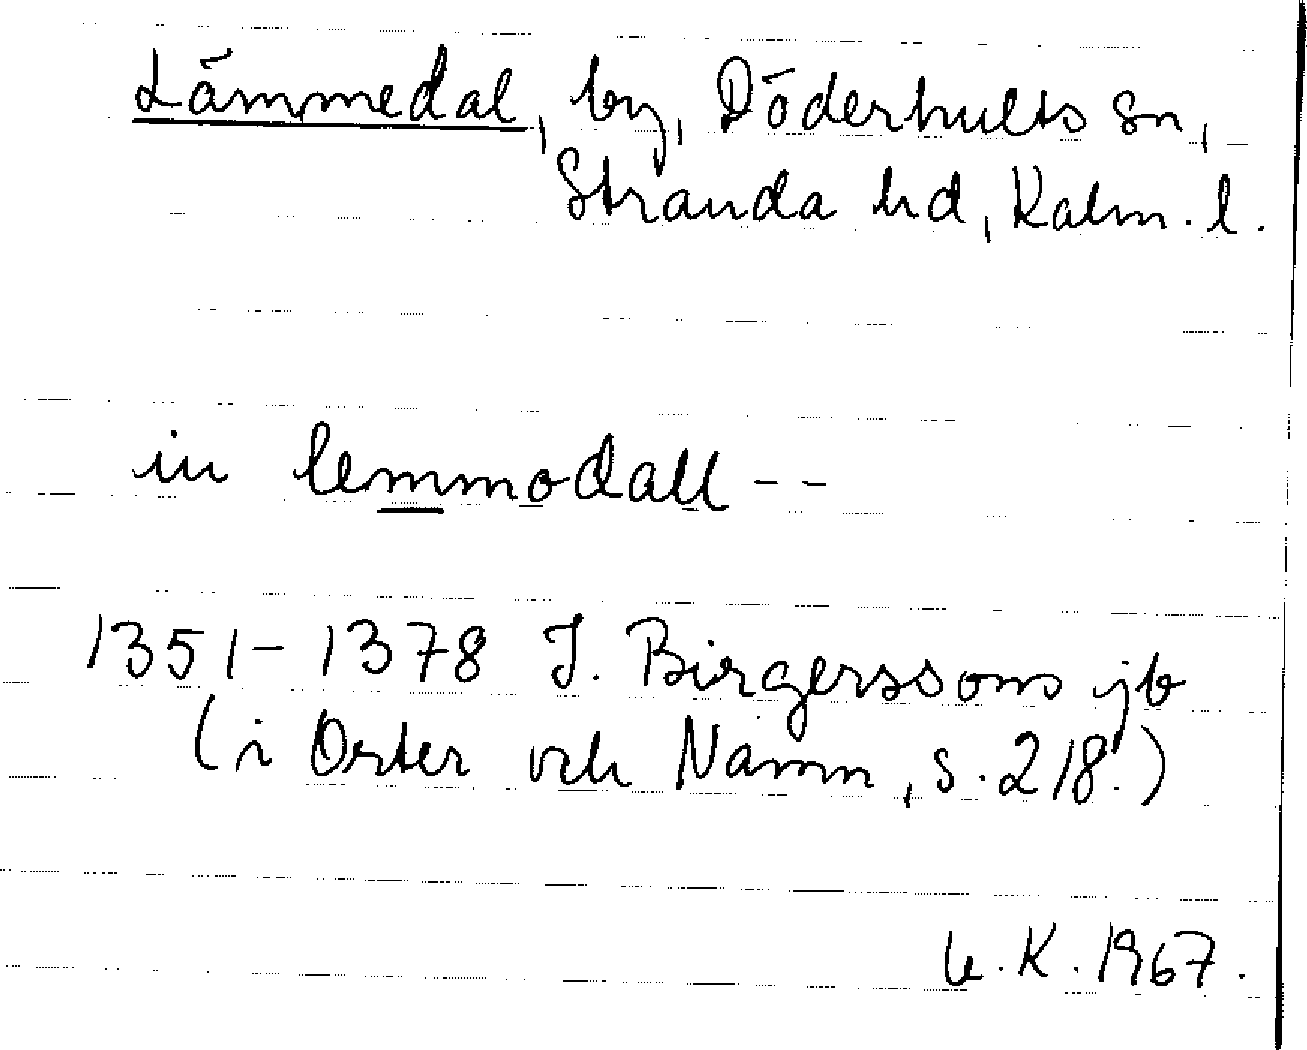 Lämmedal, by, Döderhults sn,
Stranda hd, Kalm. l.
in lemmodall --
1351-1378 J. Birgerssons jb
(i Orter och Namn, s. 218.)
U. K. 1967.